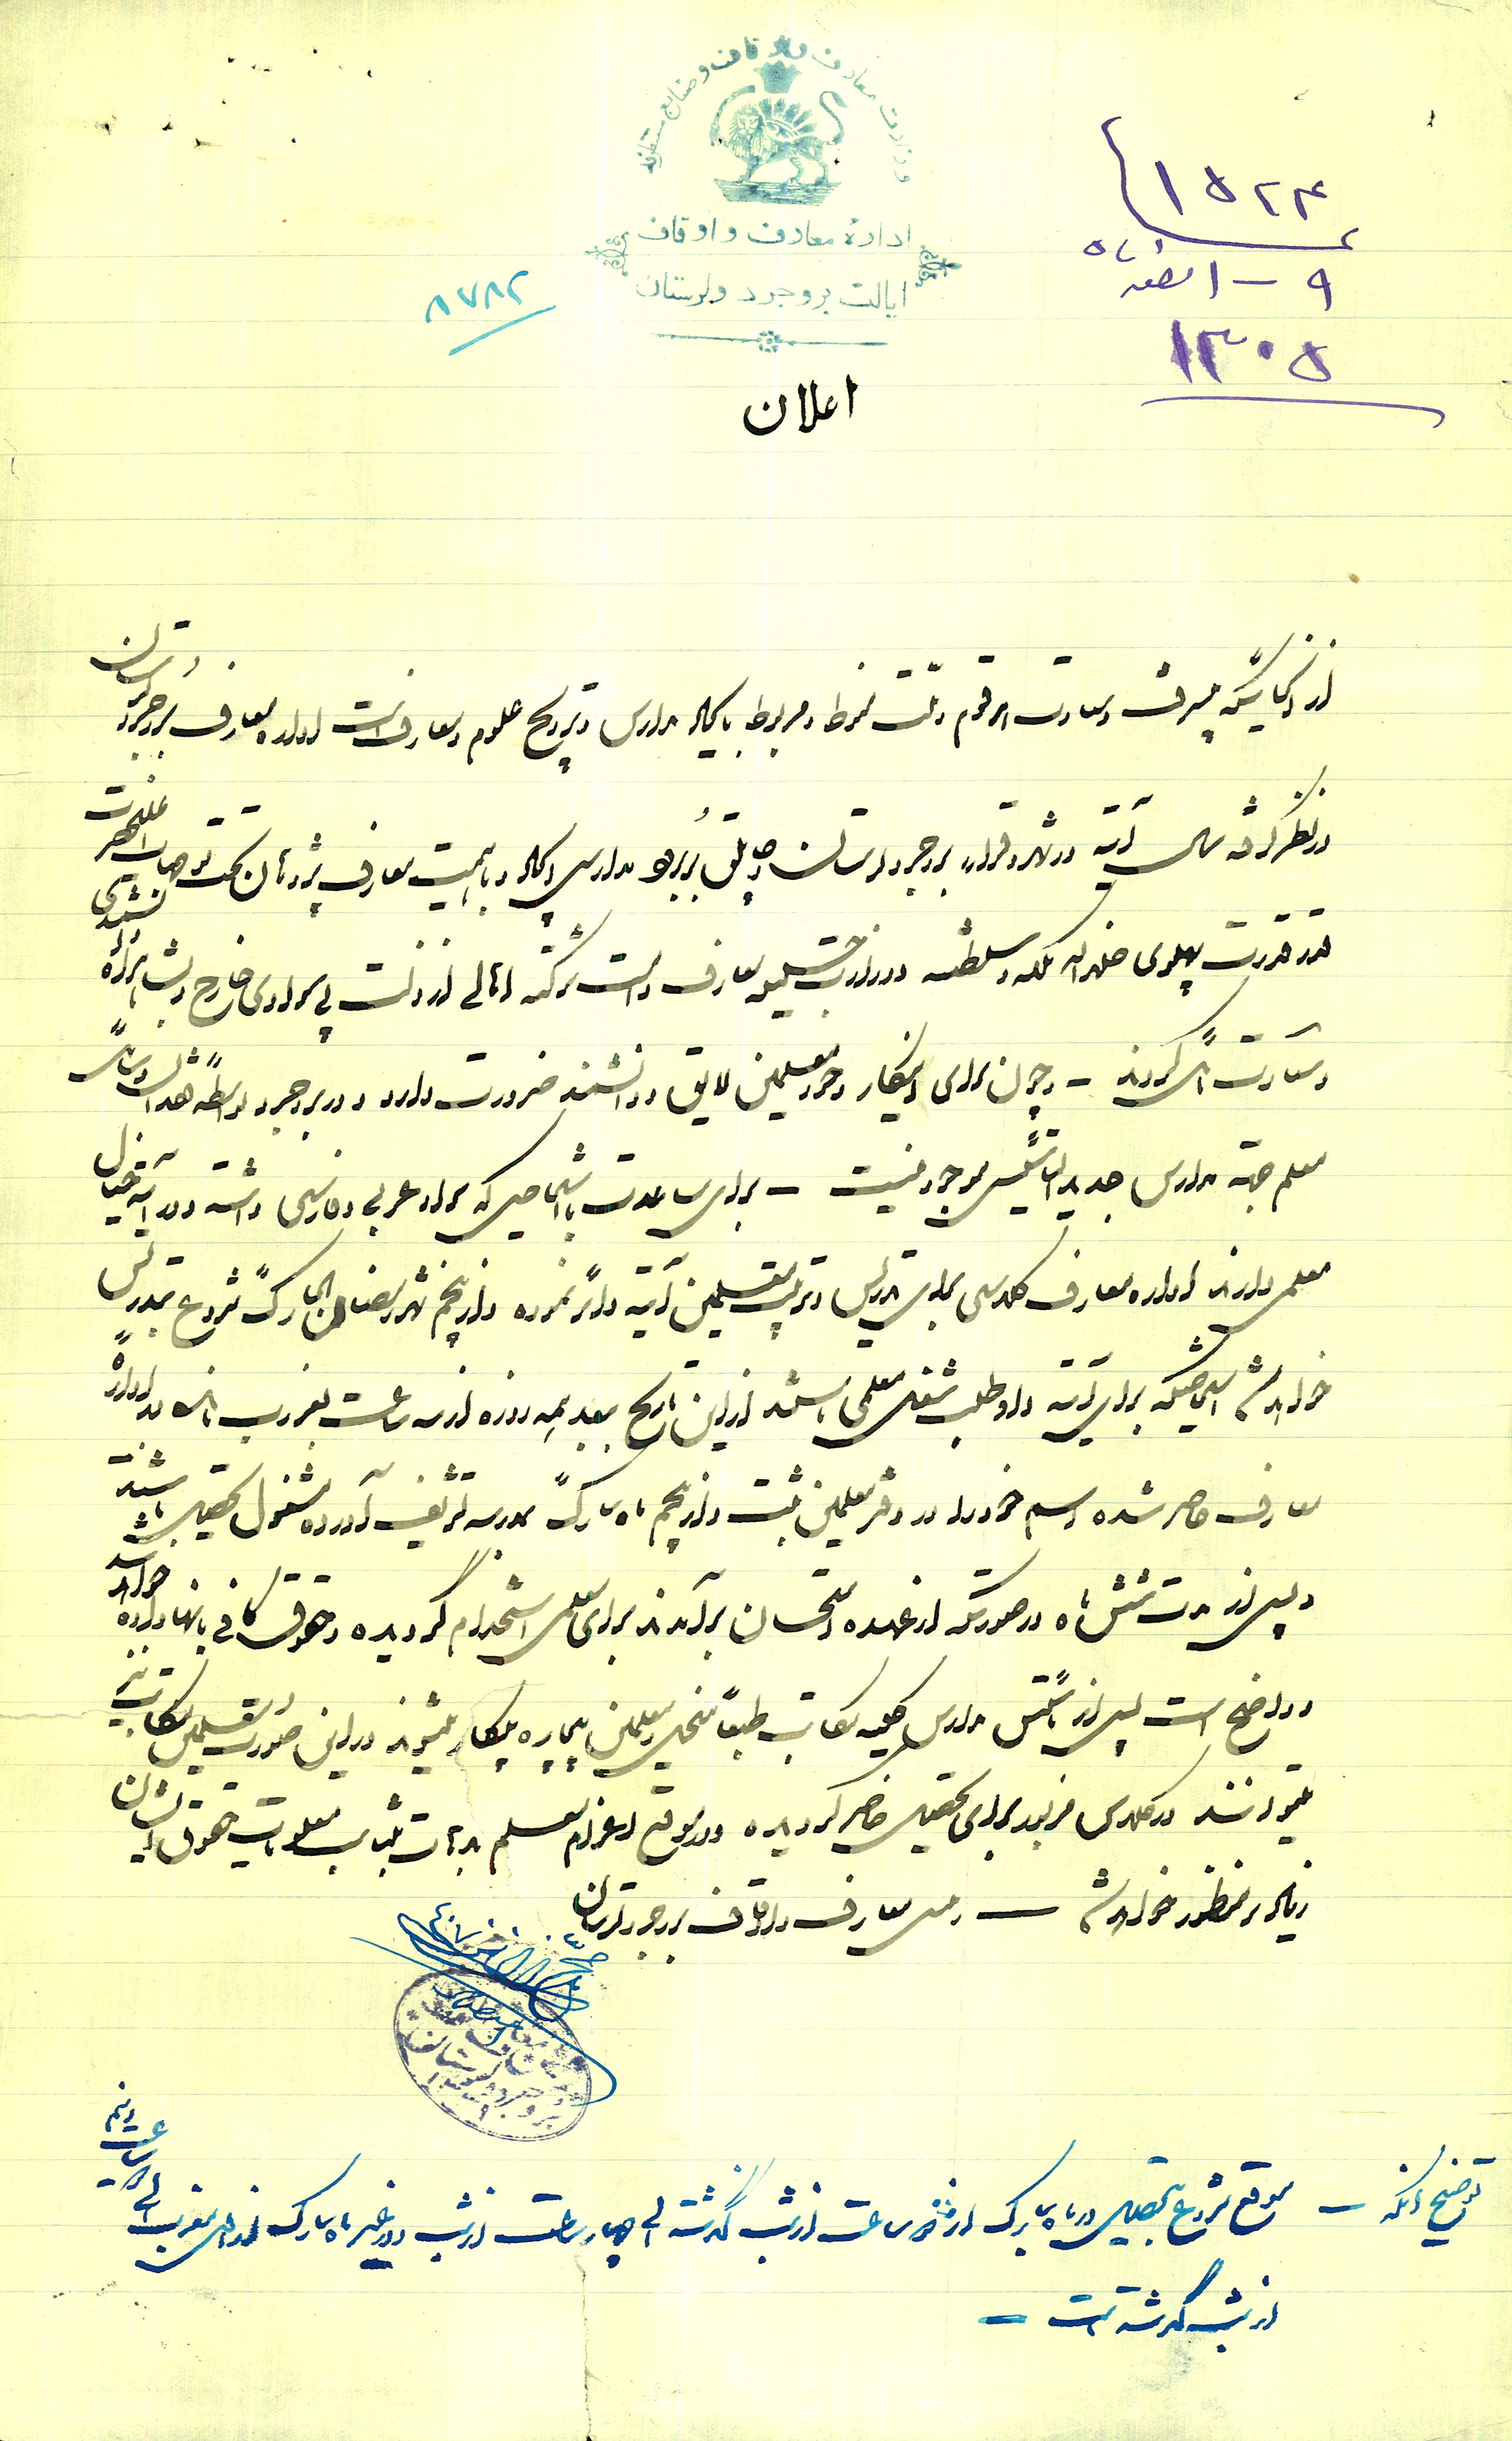 وزارت معارف و اوقاف و صنایع مستظرفه
ادارهٔ معارف و اوقاف
ایالت بروجرد و لرستان
۱۵۲۴
۹ – ۱
۱۳۰۵
۸۷۸۲
اعلان
از آنجائیکه پیشرفت و سعادت هر قوم و ملت منوط و مربوط بایجاد مدارس و ترویج علوم و معارف است اداره معارف بروجرد و لرستان
در نظر گرفته سال آتیه در شهر و قراء بروجرد و لرستان و جاپلق مدارسی ایجاد و باهمیت معارف تحت توجهات اعلیحضرت
قدر قدرت پهلوی خلدالله ملکه و سلطنته و وزارت جلیله معارف اهالی از ذلت بی سوادی خارج و بشاهراه
و سعادت نائل گردند – و چون برای اینکار وجود معلمین لایق و دانشمند ضرورت دارد و در بروجرد بواسطه فقدان
معلم جهة مدارس جدید التأسیس موجود نیست – برای مساعدت باشخاصی که سواد عربی و فارسی داشته و در آتیه خیال
معلمی دارند اداره معارف کلاسی برای تدریس و تربیت معلمین آتیه دائر نموده و از پنجم شهر رمضان المبارک شروع بتدریس
خواهد شد اشخاصیکه برای آتیه داوطلب شغل معلمی هستند از این تاریخ ببعد همه روزه از سه ساعت بغروب مانده در اداره
معارف حاضر شده اسم خود را در دفتر معلمین ثبت و از پنجم ماه مبارک بمدرسه تشریف آورده مشغول تحصیل باشند
و پس از مدت شش ماه در صورتیکه از عهده امتحان برآمدند برای معلمی استخدام گردیده و حقوق کافی بآنها داده خواهد شد
و واضح است پس از تأسیس مدارس کلیه مکاتب طبعاً منحل و معلمین بیچاره بیکار میشوند در این صورت معلمین مکاتب نیز
میتوانند در کلاس مزبور برای تحصیل حاضر گردیده و در موقع اعزام معلم بدهات بتناسب معلومات حقوق ایشان
زیادتر منظور خواهد شد – رئیس معارف و اوقاف بروجرد و لرستان
توضیح آنکه – موقع شروع بتحصیل در ماه مبارک از ساعت از شب گذشته الی چهار ساعت از شب و در غیر ماه مبارک از اول مغرب الی ساعت و نیم
از شب گذشته است –